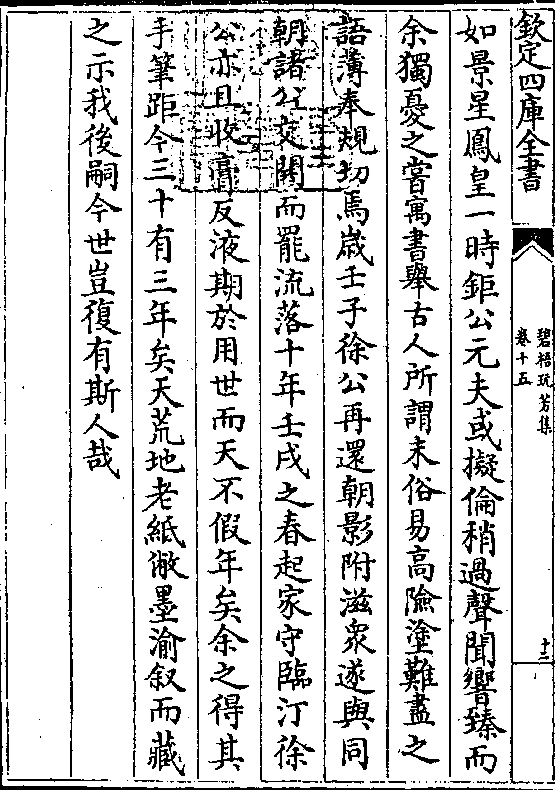 欽定四庫全書
碧梧玩芳集
卷十五
十二
如景星鳳皇一時鉅公元夫或擬倫稍過聲聞響臻而
余獨憂之嘗寓書舉古人所謂末俗易高險塗難盡之
語薄奉規切焉歲壬子徐公再還朝影附滋衆遂與同
朝諸公交關而罷流落十年壬戌之春起家守臨汀徐
公亦且收膏反液期於用世而天不假年矣余之得其
手筆距今三十有三年矣天荒地老紙敝墨渝叙而藏
之示我後嗣今世豈復有斯人哉